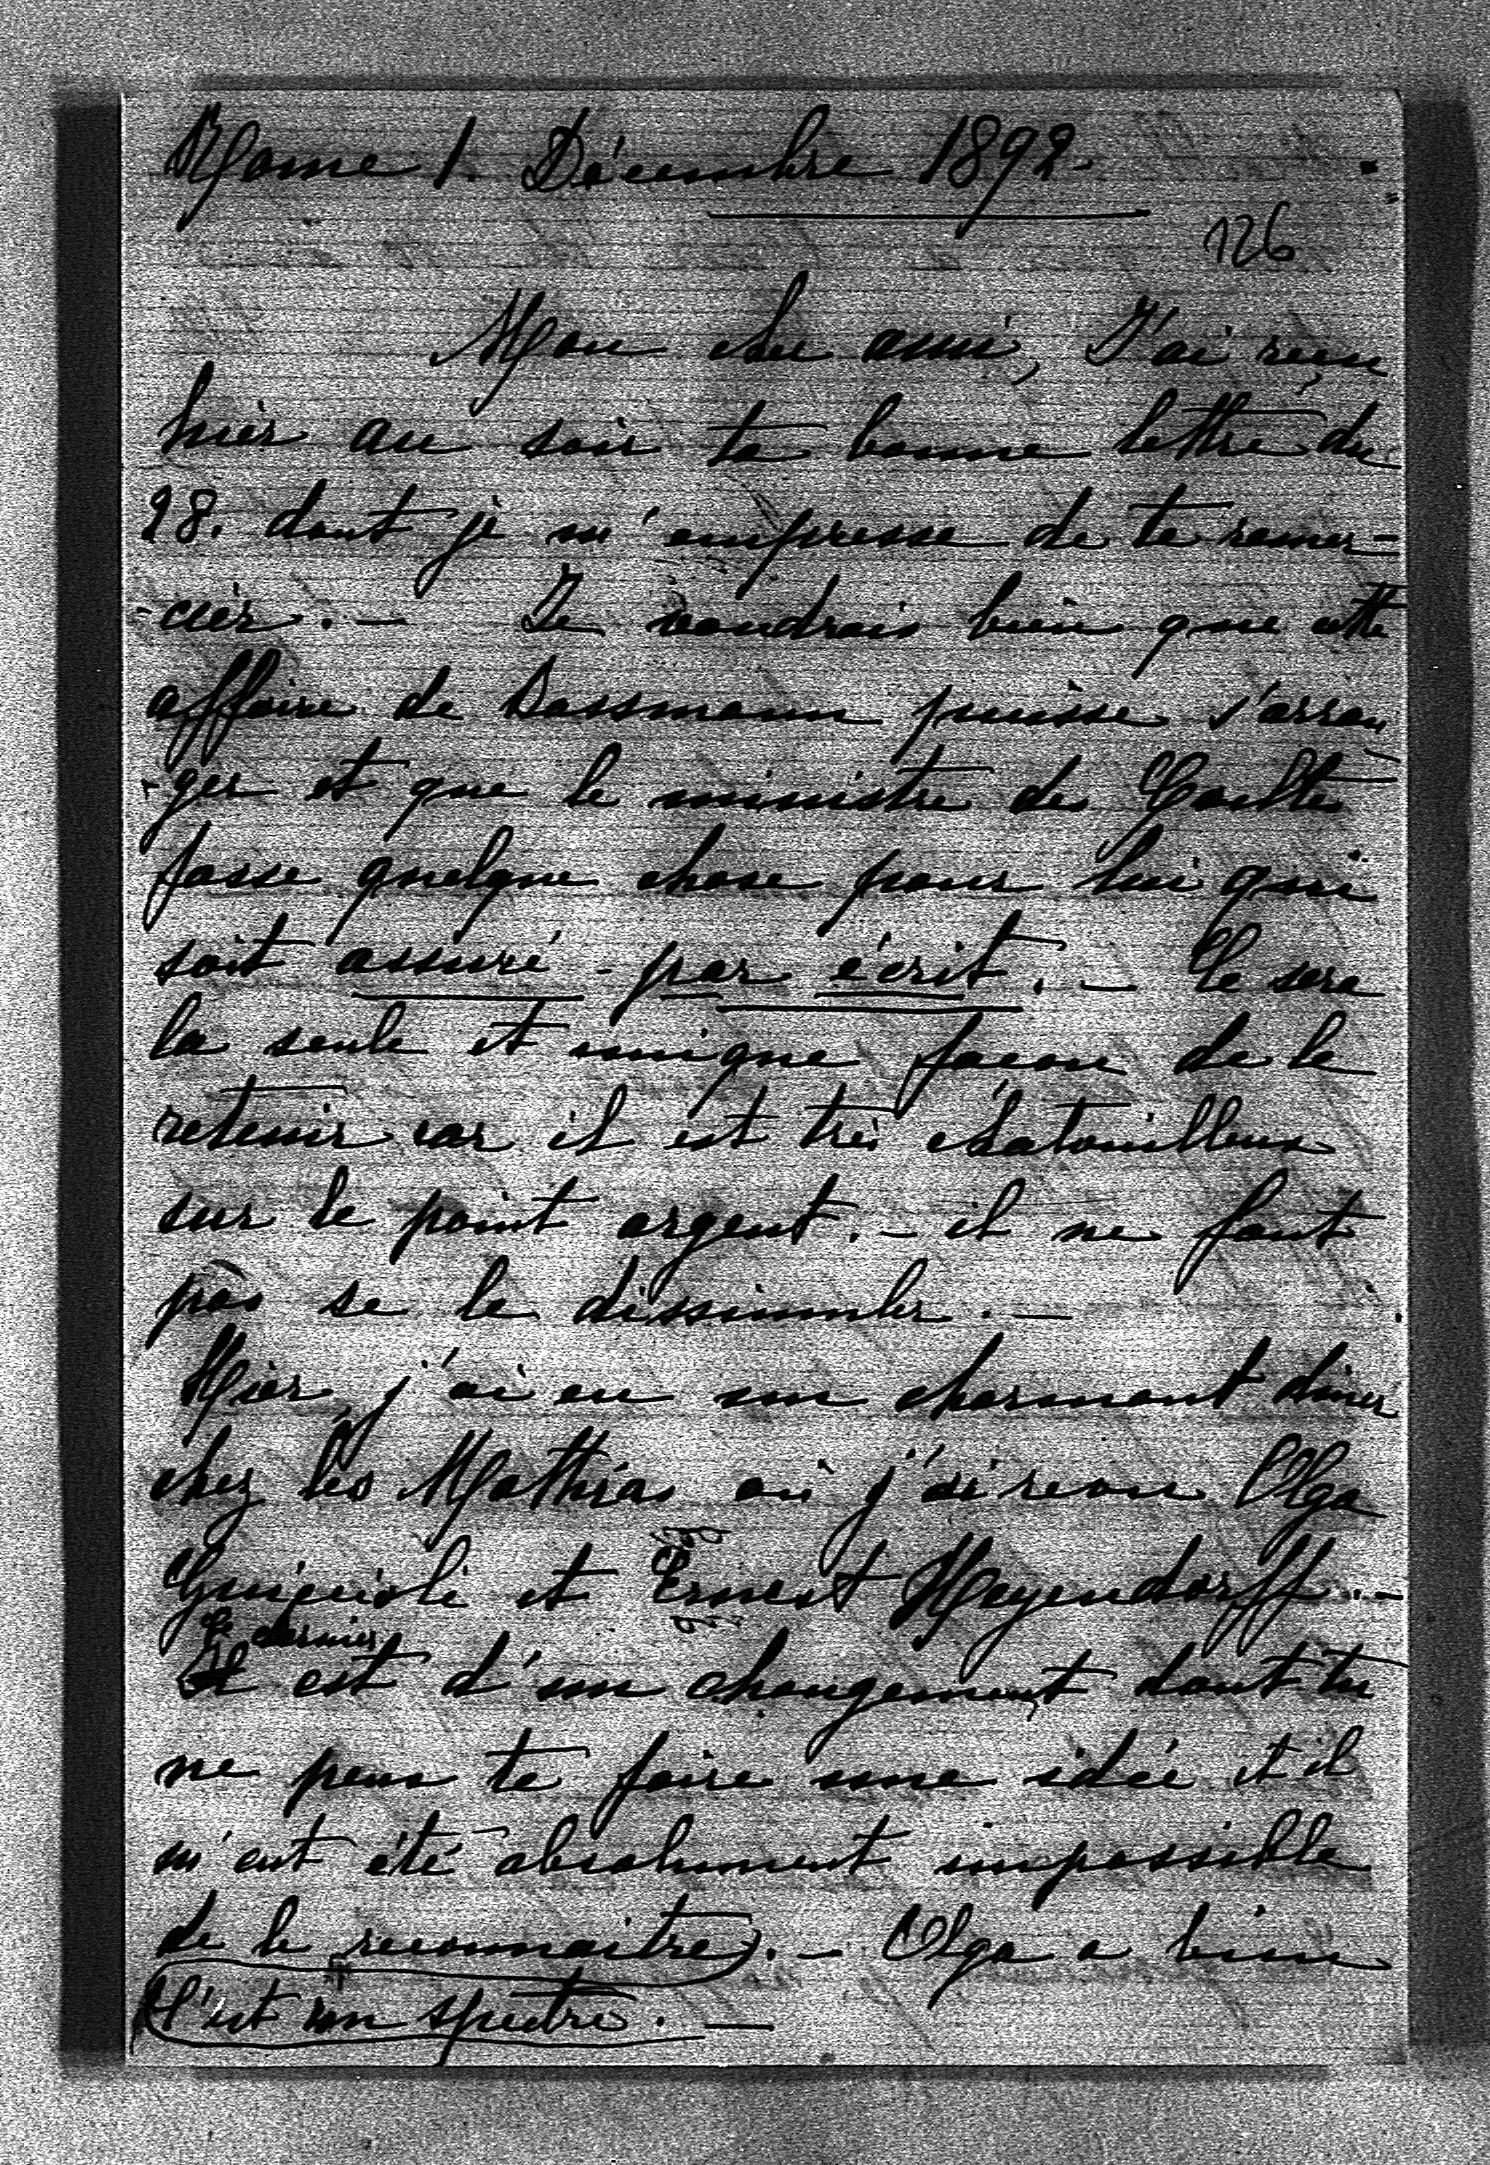 Rome 1. Décembre 1892.
126
Mon cher ami, J'ai reçu
hier au soir ta bonne lettre du
28. dont je m'empresse de te remer=
-cier. — Je voudrais bien que cette
affaire de Dassmann puisse s'arran
-ger et que le ministre de
fasse quelque chose pour lui qui
soit assuré - par écrit. — Ce sera
la seule et unique façon de le
retenir car il est très chatouilleux
sur le point argent. — il ne faut
pas se le dissimuler. —
Hier, j'ai eu un charmant diner
chez les Mathias où j'ai revu Olga
et Ernest Meyendorff. —
Ce dernier
Il est d'un changement dont tu
ne peux te faire une idée et il
m'eut été absolument impossible
de le reconnaitre. — Olga a bien
C'est un spectre. —